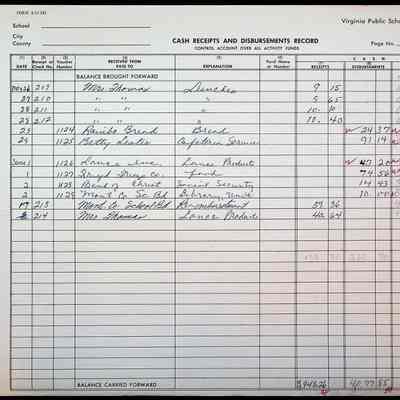 FORM
Virginia Public Scho
School
City
County
CASH RECEIPTS AND DISBURSEMENTS RECORD
CONTROL ACCOUNT OVER ALL ACTIVITY FUNDS
Page No.
(1) (2) (3) (4) (5) (6) (7) (8)
CASH
DATE Receipt or Check No. Voucher Number RECEIVED FROM PAID TO EXPLANATION Fund Name or Number RECEIPTS DISBURSEMENTS
BALANCE BROUGHT FORWARD
209 Mrs. Thomas Lunches 9 15
27 210 " " " 5 65
28 211 " " " 10 10
28 212 " " " 11 40
25 1124 Rainbo Bread Bread 24 37
29 1125 Betty Leslie Cafeteria Service 91 14
June 1 1126 Lance Inc. Lance Products 47 20
1 1127 Lloyd Drug Co. 74 56
2 1128 Social Security 14 43
2 1129 Mont Co. Sc. Bd Library 10 00
213 Mont. Co. School Bd Reimbursement 59 36
214 Mrs. Thomas Lance Products 40 64
BALANCE CARRIED FORWARD